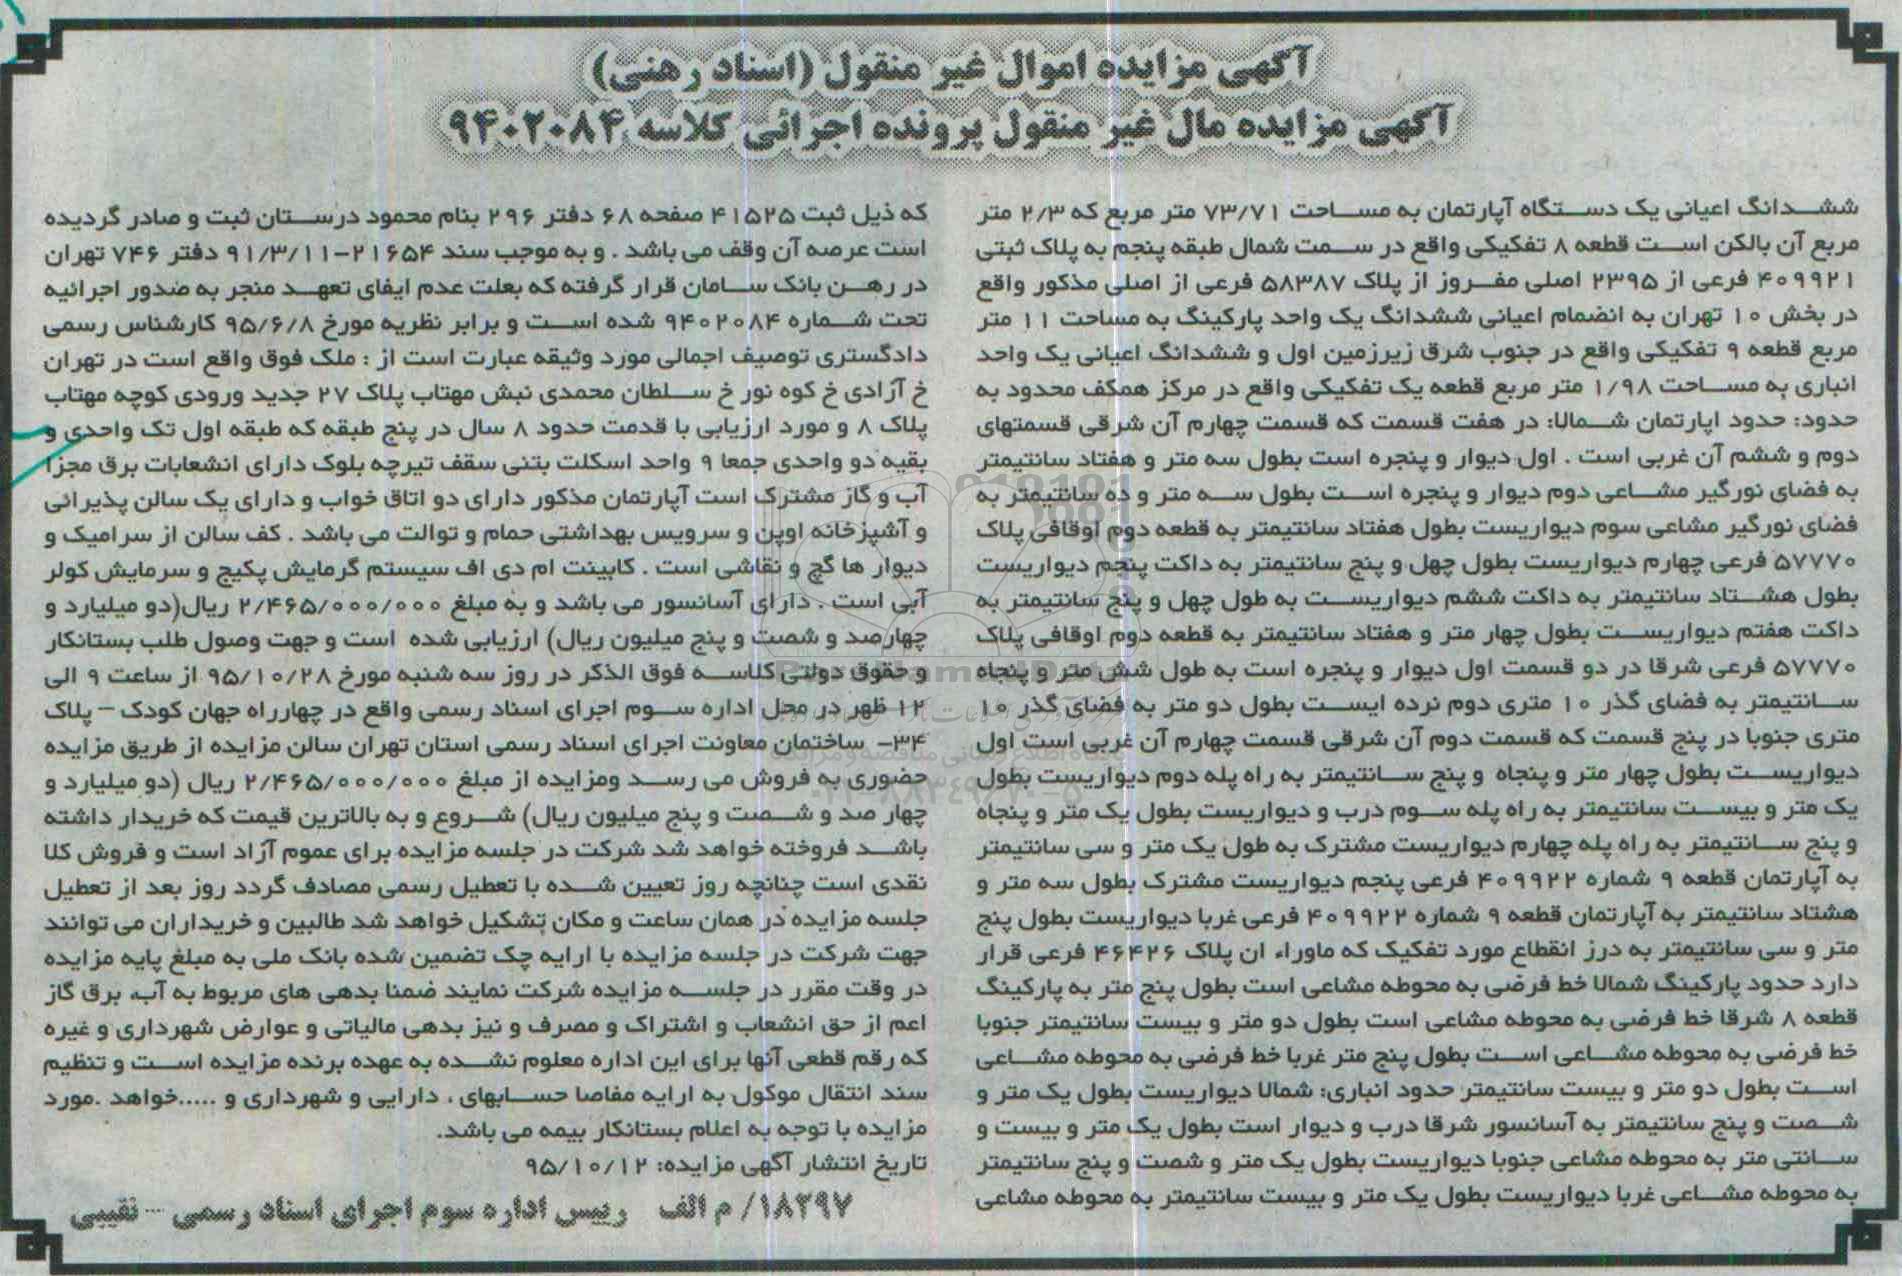 آگهی مزایده اموال غیر منقول (اسناد رهنی)
آگهی مزایده مال غیر منقول پرونده اجرائی کلاسه ۹۴۰۲۰۸۴
ششدانگ اعیانی یک دستگاه آپارتمان به مساحت ۷۳/۷۱ متر مربع که ۲/۳ متر
مربع آن بالکن است قطعه ۸ تفکیکی واقع در سمت شمال طبقه پنجم به پلاک ثبتی
۴۰۹۹۲۱ فرعی از ۲۳۹۵ اصلی مفروز از پلاک ۵۸۳۸۷ فرعی از اصلی مذکور واقع
در بخش ۱۰ تهران به انضمام اعیانی ششدانگ یک واحد پارکینگ به مساحت ۱۱ متر
مربع قطعه ۹ تفکیکی واقع در جنوب شرق زیرزمین اول و ششدانگ اعیانی یک واحد
انباری به مساحت ۱/۹۸ متر مربع قطعه یک تفکیکی واقع در مرکز همکف محدود به
حدود: حدود اپارتمان شمالا: در هفت قسمت که قسمت چهارم آن شرقی قسمتهای
دوم و ششم آن غربی است . اول دیوار و پنجره است بطول سه متر و هفتاد سانتیمتر
به فضای نورگیر مشاعی دوم دیوار و پنجره است بطول سه متر و ده سانتیمتر به
فضای نورگیر مشاعی سوم دیواریست بطول هفتاد سانتیمتر به قطعه دوم اوقافی پلاک
۵۷۷۷۰ فرعی چهارم دیواریست بطول چهل و پنج سانتیمتر به داکت پنجم دیواریست
بطول هشتاد سانتیمتر به داکت ششم دیواریست به طول چهل و پنج سانتیمتر به
داکت هفتم دیواریست بطول چهار متر و هفتاد سانتیمتر به قطعه دوم اوقافی پلاک
۵۷۷۷۰ فرعی شرقا در دو قسمت اول دیوار و پنجره است به طول شش متر و پنجاه
سانتیمتر به فضای گذر ۱۰ متری دوم نرده ایست بطول دو متر به فضای گذر ۱۰
متری جنوبا در پنج قسمت که قسمت دوم آن شرقی قسمت چهارم آن غربی است اول
دیواریست بطول چهار متر و پنجاه و پنج سانتیمتر به راه پله دوم دیواریست بطول
یک متر و بیست سانتیمتر به راه پله سوم درب و دیواریست بطول یک متر و پنجاه
و پنج سانتیمتر به راه پله چهارم دیواریست مشترک به طول یک متر و سی سانتیمتر
به آپارتمان قطعه ۹ شماره ۴۰۹۹۲۲ فرعی پنجم دیواریست مشترک بطول سه متر و
هشتاد سانتیمتر به آپارتمان قطعه ۹ شماره ۴۰۹۹۲۲ فرعی غربا دیواریست بطول پنج
متر و سی سانتیمتر به درز انقطاع مورد تفکیک که ماوراء ان پلاک ۴۶۴۲۶ فرعی قرار
دارد حدود پارکینگ شمالا خط فرضی به محوطه مشاعی است بطول پنج متر به پارکینگ
قطعه ۸ شرقا خط فرضی به محوطه مشاعی است بطول دو متر و بیست سانتیمتر جنوبا
خط فرضی به محوطه مشاعی است بطول پنج متر غربا خط فرضی به محوطه مشاعی
است بطول دو متر و بیست سانتیمتر حدود انباری: شمالا دیواریست بطول یک متر و
شصت و پنج سانتیمتر به آسانسور شرقا درب و دیوار است بطول یک متر و بیست و
سانتی متر به محوطه مشاعی جنوبا دیواریست بطول یک متر و شصت و پنج سانتیمتر
به محوطه مشاعی غربا دیواریست بطول یک متر و بیست سانتیمتر به محوطه مشاعی
که ذیل ثبت ۴۱۵۲۵ صفحه ۶۸ دفتر ۲۹۶ بنام محمود درستان ثبت و صادر گردیده
است عرصه آن وقف می باشد . و به موجب سند ۲۱۶۵۴-۹۱/۳/۱۱ دفتر ۷۴۶ تهران
در رهن بانک سامان قرار گرفته که بعلت عدم ایفای تعهد منجر به صدور اجرائیه
تحت شماره ۹۴۰۲۰۸۴ شده است و برابر نظریه مورخ ۹۵/۶/۸ کارشناس رسمی
دادگستری توصیف اجمالی مورد وثیقه عبارت است از : ملک فوق واقع است در تهران
خ آزادی خ کوه نور خ سلطان محمدی نبش مهتاب پلاک ۲۷ جدید ورودی کوچه مهتاب
پلاک ۸ و مورد ارزیابی با قدمت حدود ۸ سال در پنج طبقه که طبقه اول تک واحدی و
بقیه دو واحدی جمعا ۹ واحد اسکلت بتنی سقف تیرچه بلوک دارای انشعابات برق مجزا
آب و گاز مشترک است آپارتمان مذکور دارای دو اتاق خواب و دارای یک سالن پذیرائی
و آشپزخانه اوپن و سرویس بهداشتی حمام و توالت می باشد . کف سالن از سرامیک و
دیوار ها گچ و نقاشی است . کابینت ام دی اف سیستم گرمایش پکیج و سرمایش کولر
آبی است . دارای آسانسور می باشد و به مبلغ ۲/۴۶۵/۰۰۰/۰۰۰ ریال(دو میلیارد و
چهارصد و شصت و پنج میلیون ریال) ارزیابی شده است و جهت وصول طلب بستانکار
و حقوق دولتی کلاسه فوق الذکر در روز سه شنبه مورخ ۹۵/۱۰/۲۸ از ساعت ۹ الی
۱۲ ظهر در محل اداره سوم اجرای اسناد رسمی واقع در چهارراه جهان کودک – پلاک
۳۴- ساختمان معاونت اجرای اسناد رسمی استان تهران سالن مزایده از طریق مزایده
حضوری به فروش می رسد ومزایده از مبلغ ۲/۴۶۵/۰۰۰/۰۰۰ ریال (دو میلیارد و
چهار صد و شصت و پنج میلیون ریال) شروع و به بالاترین قیمت که خریدار داشته
باشد فروخته خواهد شد شرکت در جلسه مزایده برای عموم آزاد است و فروش کلا
نقدی است چنانچه روز تعیین شده با تعطیل رسمی مصادف گردد روز بعد از تعطیل
جلسه مزایده در همان ساعت و مکان تشکیل خواهد شد طالبین و خریداران می توانند
جهت شرکت در جلسه مزایده با ارایه چک تضمین شده بانک ملی به مبلغ پایه مزایده
در وقت مقرر در جلسه مزایده شرکت نمایند ضمنا بدهی های مربوط به آب، برق گاز
اعم از حق انشعاب و اشتراک و مصرف و نیز بدهی مالیاتی و عوارض شهرداری و غیره
که رقم قطعی آنها برای این اداره معلوم نشده به عهده برنده مزایده است و تنظیم
سند انتقال موکول به ارایه مفاصا حسابهای ، دارایی و شهرداری و .....خواهد .مورد
مزایده با توجه به اعلام بستانکار بیمه می باشد.
تاریخ انتشار آگهی مزایده: ۹۵/۱۰/۱۲
۱۸۲۹۷/ م الف رییس اداره سوم اجرای اسناد رسمی --- نقیبی